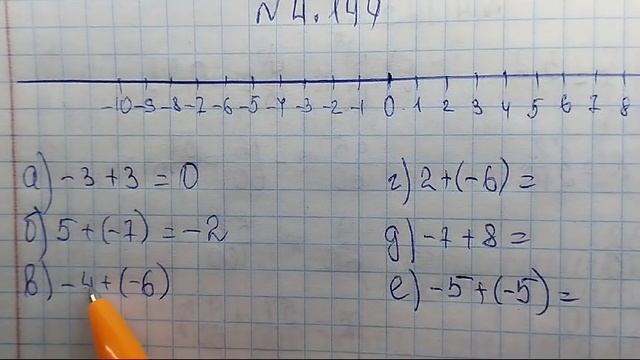 № 4.144
-10 -9 -8 -7 -6 -5 -4 -3 -2 -1 0 1 2 3 4 5 6 7 8
а) -3 + 3 = 0
б) 5 + (-7) = -2
в) -4 + (-6)
г) 2 + (-6) =
д) -7 + 8 =
е) -5 + (-5) =